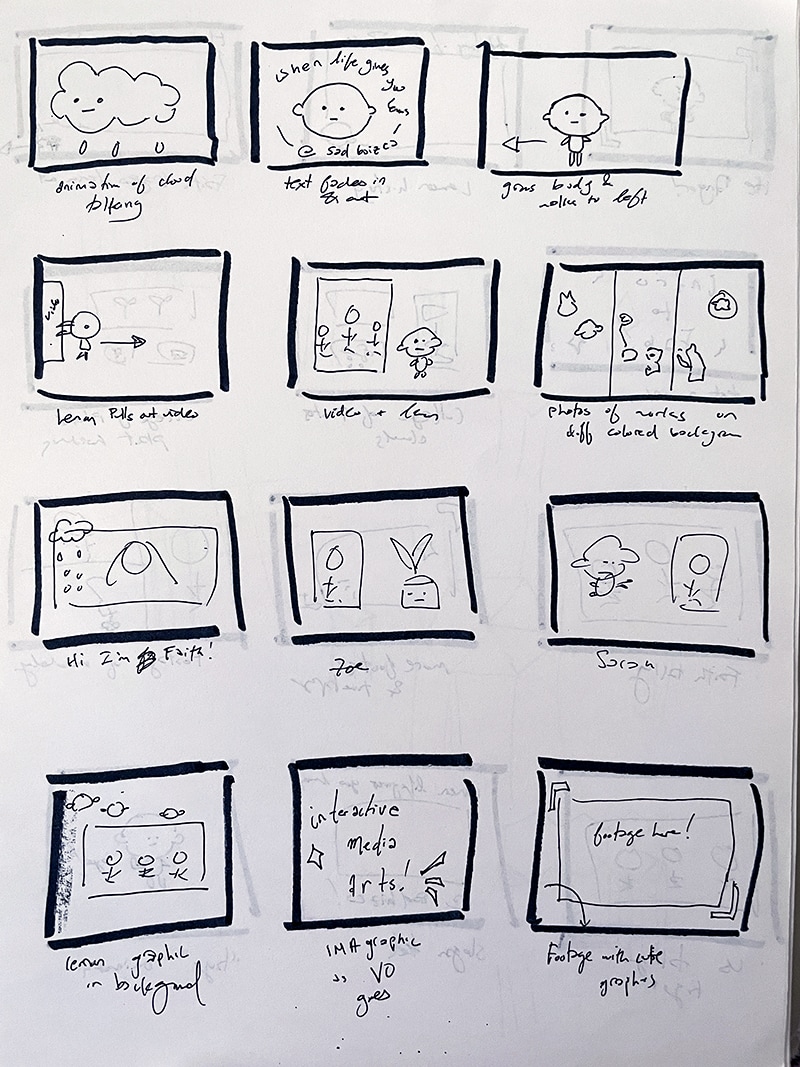 when life gives
you
lems
@ sad boizco
animation of cloud
text fades in
& out
grows body &
walks to left
video
Lemon pulls out video
video + lem
photos of merlas on
diff colored background
Hi I'm Faith!
Zoe
Saran
interactive
media
arts!
footage here!
lemon graphic
in background
IMA graphic
as VO
goes
Footage with cute
graphics